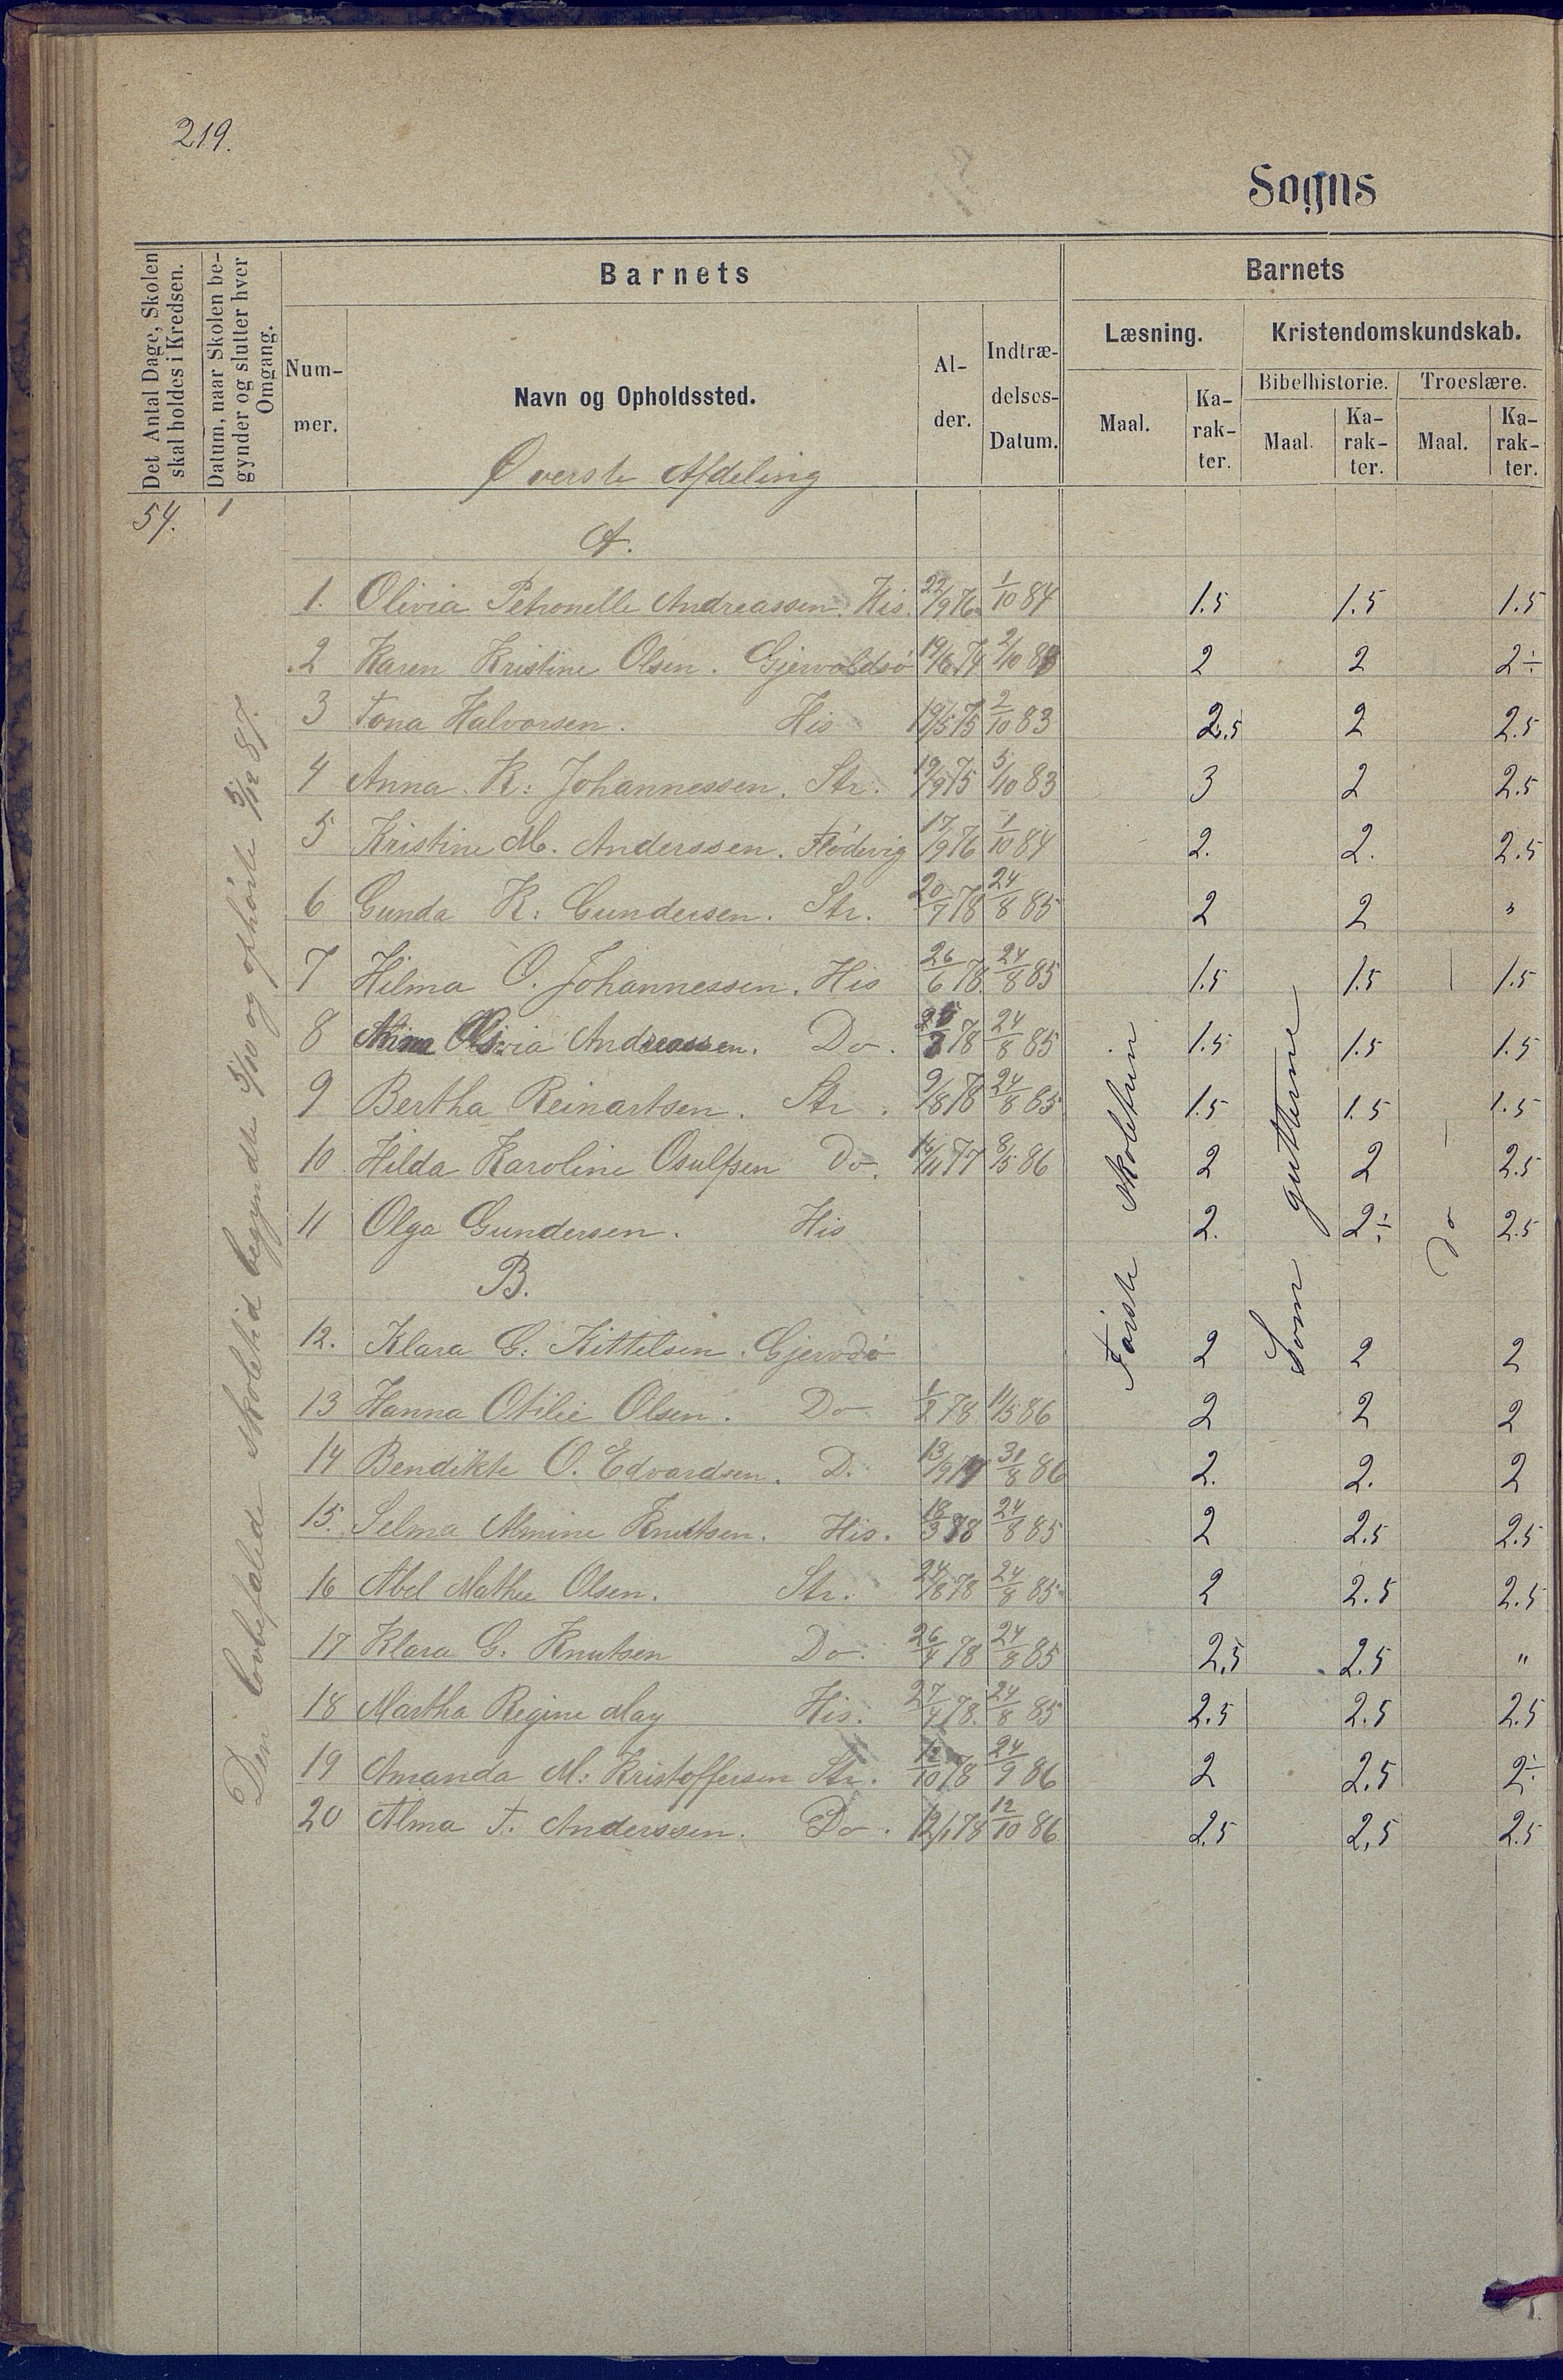 219.
Sogns
Det Antal Dage, Skolen
skal holdes i Kredsen.
Datum, naar Skolen be-
gynder og slutter hver
Omgang.
Barnets
Barnets
Num-
mer.
Navn og Opholdssted.
Al-
der.
Indtræ-
delses-
Datum.
Læsning.
Kristendomskundskab.
Maal.
Ka-
rak-
ter.
Bibelhistorie.
Troeslære.
Maal.
Ka-
rak-
ter.
Maal.
Ka-
rak-
ter.
Øverste Afdeling
54.
A.
1. Olivia Petronelle Andreassen. His. 22/9 76 1/10 84 1.5 1.5 1.5
2 Karen Kristine Olsen. Gjervoldsø 19/6 74 2/10 83 2 2 2÷
3 Tona Halvorsen. His 19/5 75 2/10 83 2.5 2 2.5
4 Anna K: Johannessen. Str. 19/9 75 5/10 83 3 2 2.5
5 Kristine M. Anderssen. Flødevig 17/9 76 1/10 84 2. 2. 2.5
6 Gunda K: Gundersen. Str. 20/9 78 24/8 85 2 2 "
7 Hilma O. Johannessen. His 26/6 78 24/8 85 1.5 1.5 1.5
8 Olivia Andreassen. Do. 78 24/8 85 1.5 1.5 1.5
9 Bertha Reinartsen. Str. 9/8 78 24/8 85 1.5 1.5 1.5
10 Hilda Karoline Osulfsen Do. 16/11 77 8/5 86 2 2 2.5
11 Olga Gundersen. His 2. 2÷ 2.5
B.
12. Klara G: Kittelsen. Gjervdø 2 2 2
13 Hanna Otilie Olsen. Do 1/2 78 11/5 86 2 2 2
14 Bendikte O. Edvardsen. D. 13/9 31/8 86 2. 2. 2
15. Selma Almine Knutsen. His. 18/3 78 24/8 85 2 2.5 2.5
16 Abel Mathee Olsen. Str. 24/8 78 24/8 85 2 2.5 2.5
17 Klara G. Knutsen Do. 26/4 78 24/8 85 2,5 2.5 "
18 Martha Regine May His. 27/4 78. 24/8 85 2.5 2.5 2.5
19 Amanda M: Kristoffersen Str. 12/10 78 24/9 86 2 2.5 2÷
20 Alma T. Anderssen. Do. 12/1 78 12/10 86 2.5 2,5 2.5
Den lovbefalede skoletid begyndte 3/10 og ophørte 3/12 87.
Første skoletrin
Som gutterne
Do